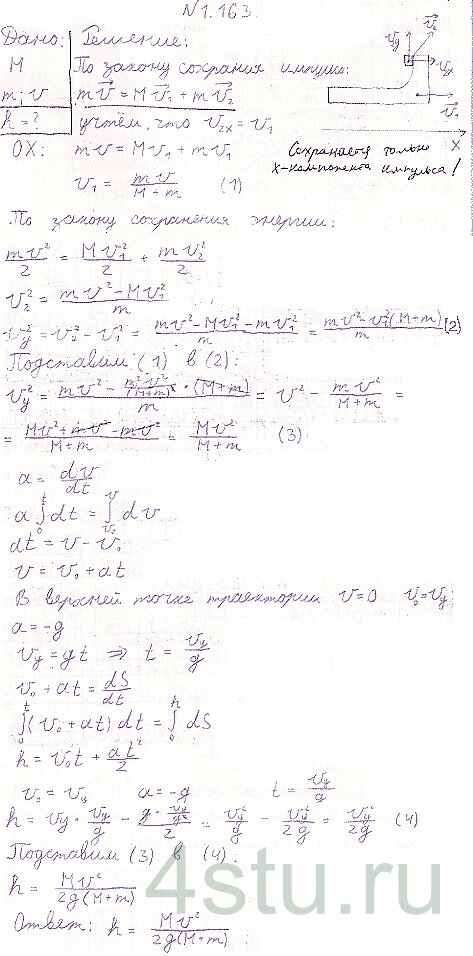 N 1.163
Дано: Решение:
М По закону сохрания импульса:
m; v mv⃗ = Mv⃗₁ + mv⃗₂
h = ? учтём, что v₂ₓ = v₁
OX: mv = Mv₁ + mv₁
v₁ = mv/(M+m) (1)
v_y v⃗₂
v_x
v⃗₁
X
Сохраняется только
X-компонента импульса!
По закону сохранения энергии:
mv²/2 = Mv₁²/2 + mv₂²/2
v₂² = (mv² - Mv₁²)/m
v_y² = v₂² - v₁² = (mv² - Mv₁² - mv₁²)/m = (mv² - v₁²(M+m))/m (2)
Подставим (1) в (2):
v_y² = (mv² - m²v²/(M+m)² · (M+m))/m = v² - mv²/(M+m) =
= (Mv² + mv² - mv²)/(M+m) = Mv²/(M+m) (3)
a = dv/dt
a ∫₀ᵗ dt = ∫_{v₀}^{v} dv
at = v - v₀
v = v₀ + at
В верхней точке траектории v = 0 v₀ = v_y:
a = -g
v_y = gt ⇒ t = v_y/g
v₀ + at = dS/dt
∫₀ᵗ (v₀ + at) dt = ∫₀ʰ dS
h = v₀t + at²/2
v₀ = v_y a = -g t = v_y/g
h = v_y · v_y/g - (g · v_y²/g²)/2 = v_y²/g - v_y²/2g = v_y²/2g (4)
Подставим (3) в (4):
h = Mv²/(2g(M+m))
Ответ: h = Mv²/(2g(M+m))
4stu.ru